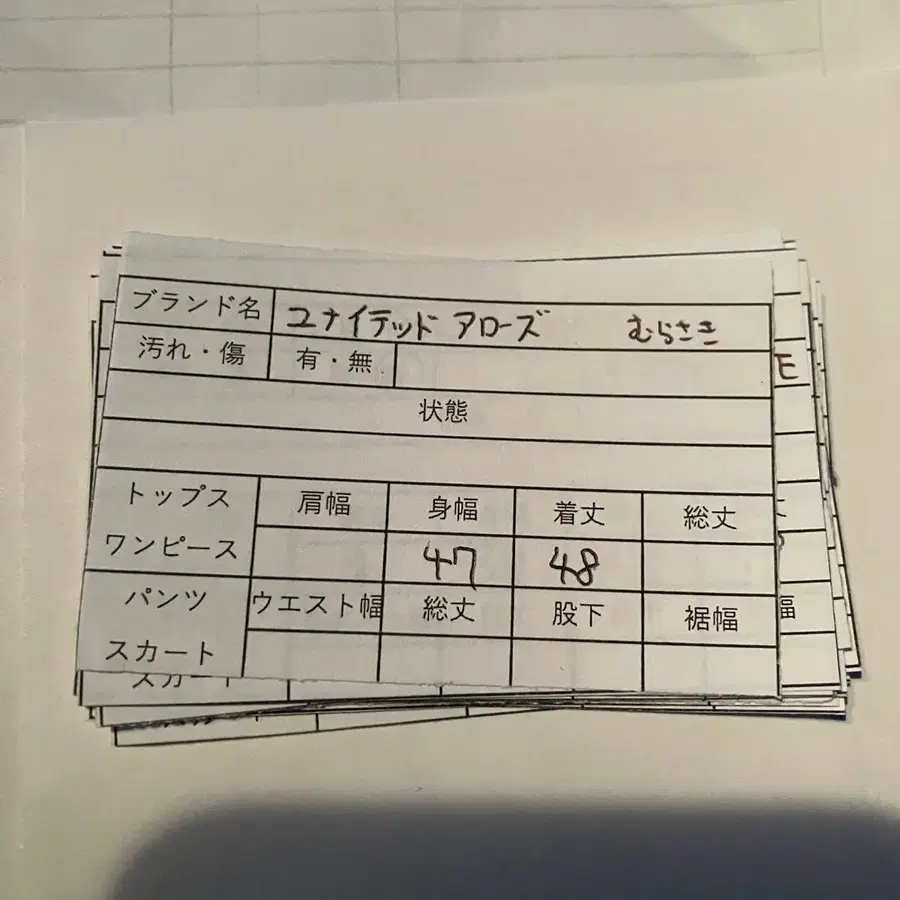 ブランド名 ユナイテッド アローズ むらさき
汚れ・傷 有・無
E
状態
トップス 肩幅 身幅 着丈 総丈
ワンピース 47 48
パンツ ウエスト幅 総丈 股下 裾幅 幅
スカート
スカート